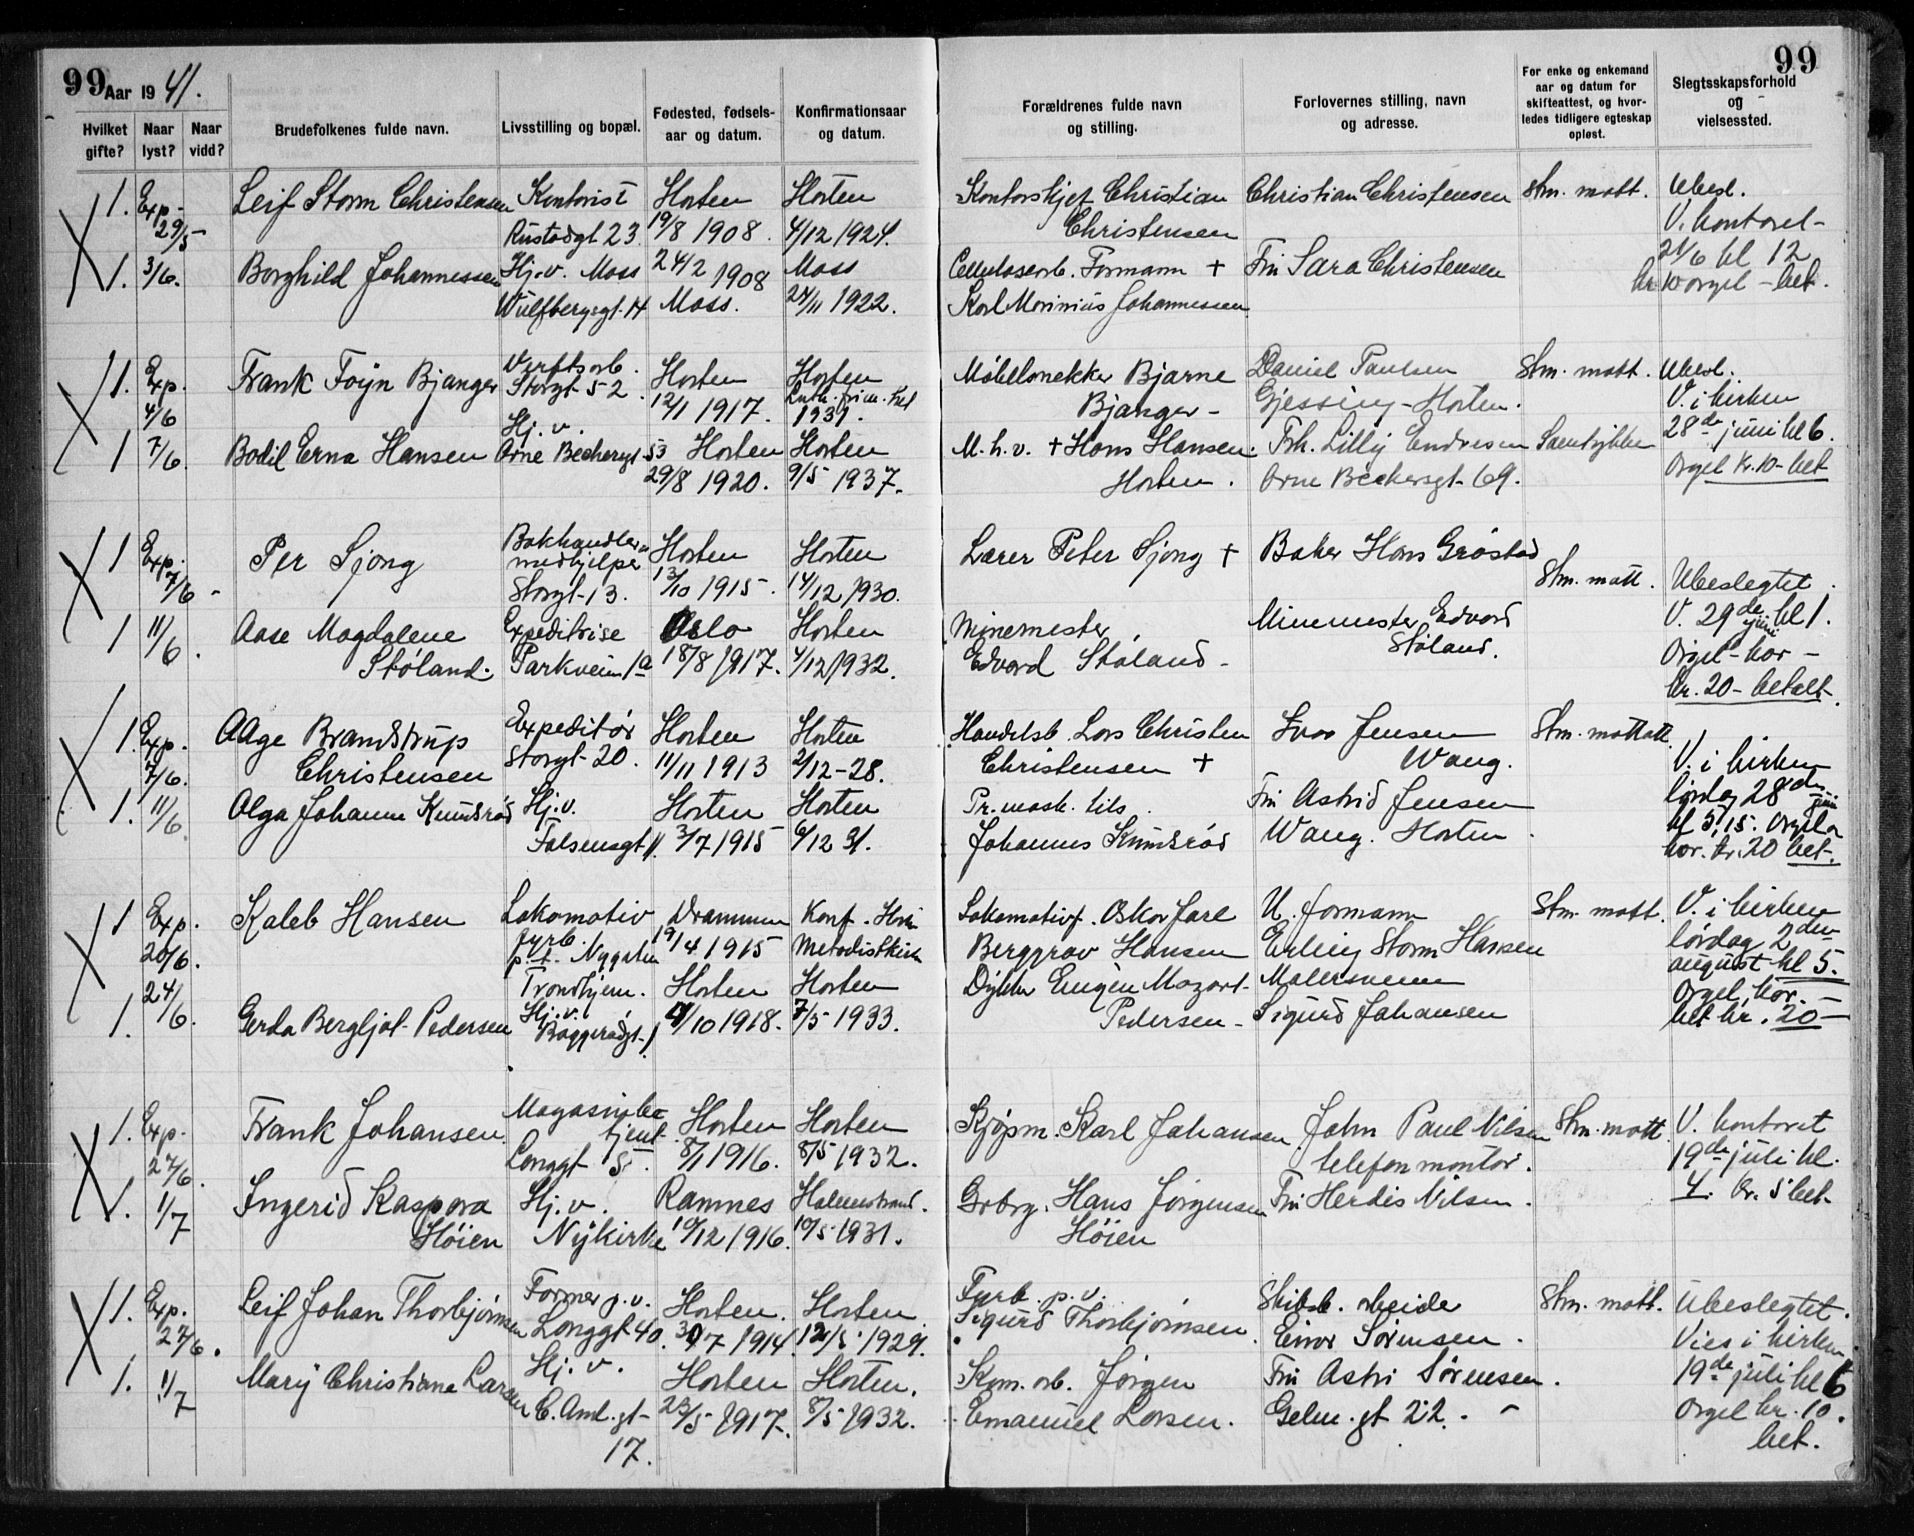 99 Aar 1941.
Hvilket gifte? Naar lyst? Naar vidd? Brudefolkenes fulde navn. Livsstilling og bopæl. Fødested, fødsels-aar og datum. Konfirmationsaar og datum.
99
Forældrenes fulde navn og stilling. Forlovernes stilling, navn og adresse. For enke og enkemand aar og datum for skifteattest, og hvor-ledes tidligere egteskap opløst. Slegtsskapsforhold og vielsessted.
1. Exp. Leif Storm Christensen Kontorist Horten Horten Kontorskjef Christian Christian Christensen Stm. mott. Ubesl.
29/5 Rustadgt 23. 19/8 1908. 4/12 1924. Christensen V. kontoret -
1. 3/6. Borghild Johannessen Hj.v. Moss 24/2 1908 Moss Celluloseorb. Formann + Fru Sara Christensen 21/6 kl 12
Wulfbergsgt. 14 Moss. 24/11 1922. Karl Marinius Johannessen kr 10 orgel - bet.
1. Exp. Frank Foyn Bjanger Verftsarb. Horten Horten Møbelsnekker Bjarne Daniel Paulsen Stm. mott. Ubesl.
4/6 Storgt 52. 12/1 1917. Luth. frim. 1931. Bjanger - Gjessing - Horten. V. i kirken
1 7/6. Bodil Erna Hansen Hj. v. Arne Beckersgt 53 Horten Horten M. h. v. + Hans Hansen. Frk. Lilly Endresen Samtykke 28de juni kl 6.
29/8 1920. 9/5 1937. Horten. Arne Beckersgt 69. Orgel kr. 10 - bet
1 Exp. Per Sjong Bokhandler- Horten Horten Lærer Peter Sjong + Baker Hans Grøstad
7/6 - medhjelper 13/10 1915. 14/12 1930. Stm. mott. Ubeslegtet.
Storgt 13. V. 29de juni kl 1.
1 11/6. Aase Magdalene Expeditrise Oslo Horten Minemester Minemester Edvard
Støland. Parkveien 1a 18/8 1917. 4/12 1932. Edvard Støland - Støland. Orgel - kor -
kr. 20 - betalt.
1. Exp. Aage Brandstrup Expeditør Horten Horten Handelsb. Lars Christen Ivar Jensen Stm. mottatt
7/6. Christensen Storgt 20. 11/11 1913 2/12 - 28. Christensen + Wang. V. i kirken
1. 11/6. Olga Johanne Kundsrød Hj.v. Horten Horten Pr. mask. tils. Fru Astrid Jensen lørdag 28de juni
Falsensgt 11. 3/7 1915 6/12 31. Johannes Kundsrød Wang. Horten. kl 5,15. Orgel
kor. kr. 20 bet.
1 Exp. Kaleb Hansen Lokomotiv Drammen Konf. Lokomotivf. Oskar Jarl U. formann Stm. mott. V. i kirken
20/6. fyrb. 19/4 1915 Metodistkirken Berggrav Hansen Erling Storm Hansen lørdag 2den
24/6. p.t. Nygaten Trondhjem. Horten Horten Eugen Mozart Malersvenn august kl 5.
1. Gerda Bergljot Pedersen Hj.v. 4/10 1918. 7/5 1933. Pedersen - Sigurd Johansen Orgel, kor. -
bet kr. 20 -
1. Exp. Frank Johansen. Magasinbe- Horten Horten Kjøpm. Karl Johansen John Paul Nilsen Stm. mott V. kontoret
27/6. tjent. Langgt 5. 8/1 1916. 8/5 1932. telefonmontør. 19de juli kl.
1. 1/7 Ingerid Kaspara Hj.v. Ramnes Holmestrand. Grbrg. Hans Jørgensen Fru Herdis Nilsen. 4. Kr. 5 bet.
Høien Nykirke 10/12 1916. 10/5 1931. Høien
1. Exp. Leif Johan Thorbjørnsen Former p.v. Horten. Horten. Fyrb. p.v. Skibsb. arbeider Stm. mott. Ubeslegtet.
27/6. Langgt 40. 30/7 1914. 12/5 1929. Sigurd Thorbjørnsen. Einar Sørensen. Vies i kirken
1. 1/7 Mary Christiane Larsen Hj.v. Horten Horten. Kom. arb. Jørgen Fru Astri Sørensen. 19de juli kl 6
C. Aml. gt - 23/5 1917. 8/5 1932. Emanuel Larsen. gt 22. - Orgel kr. 10.
17. bet.